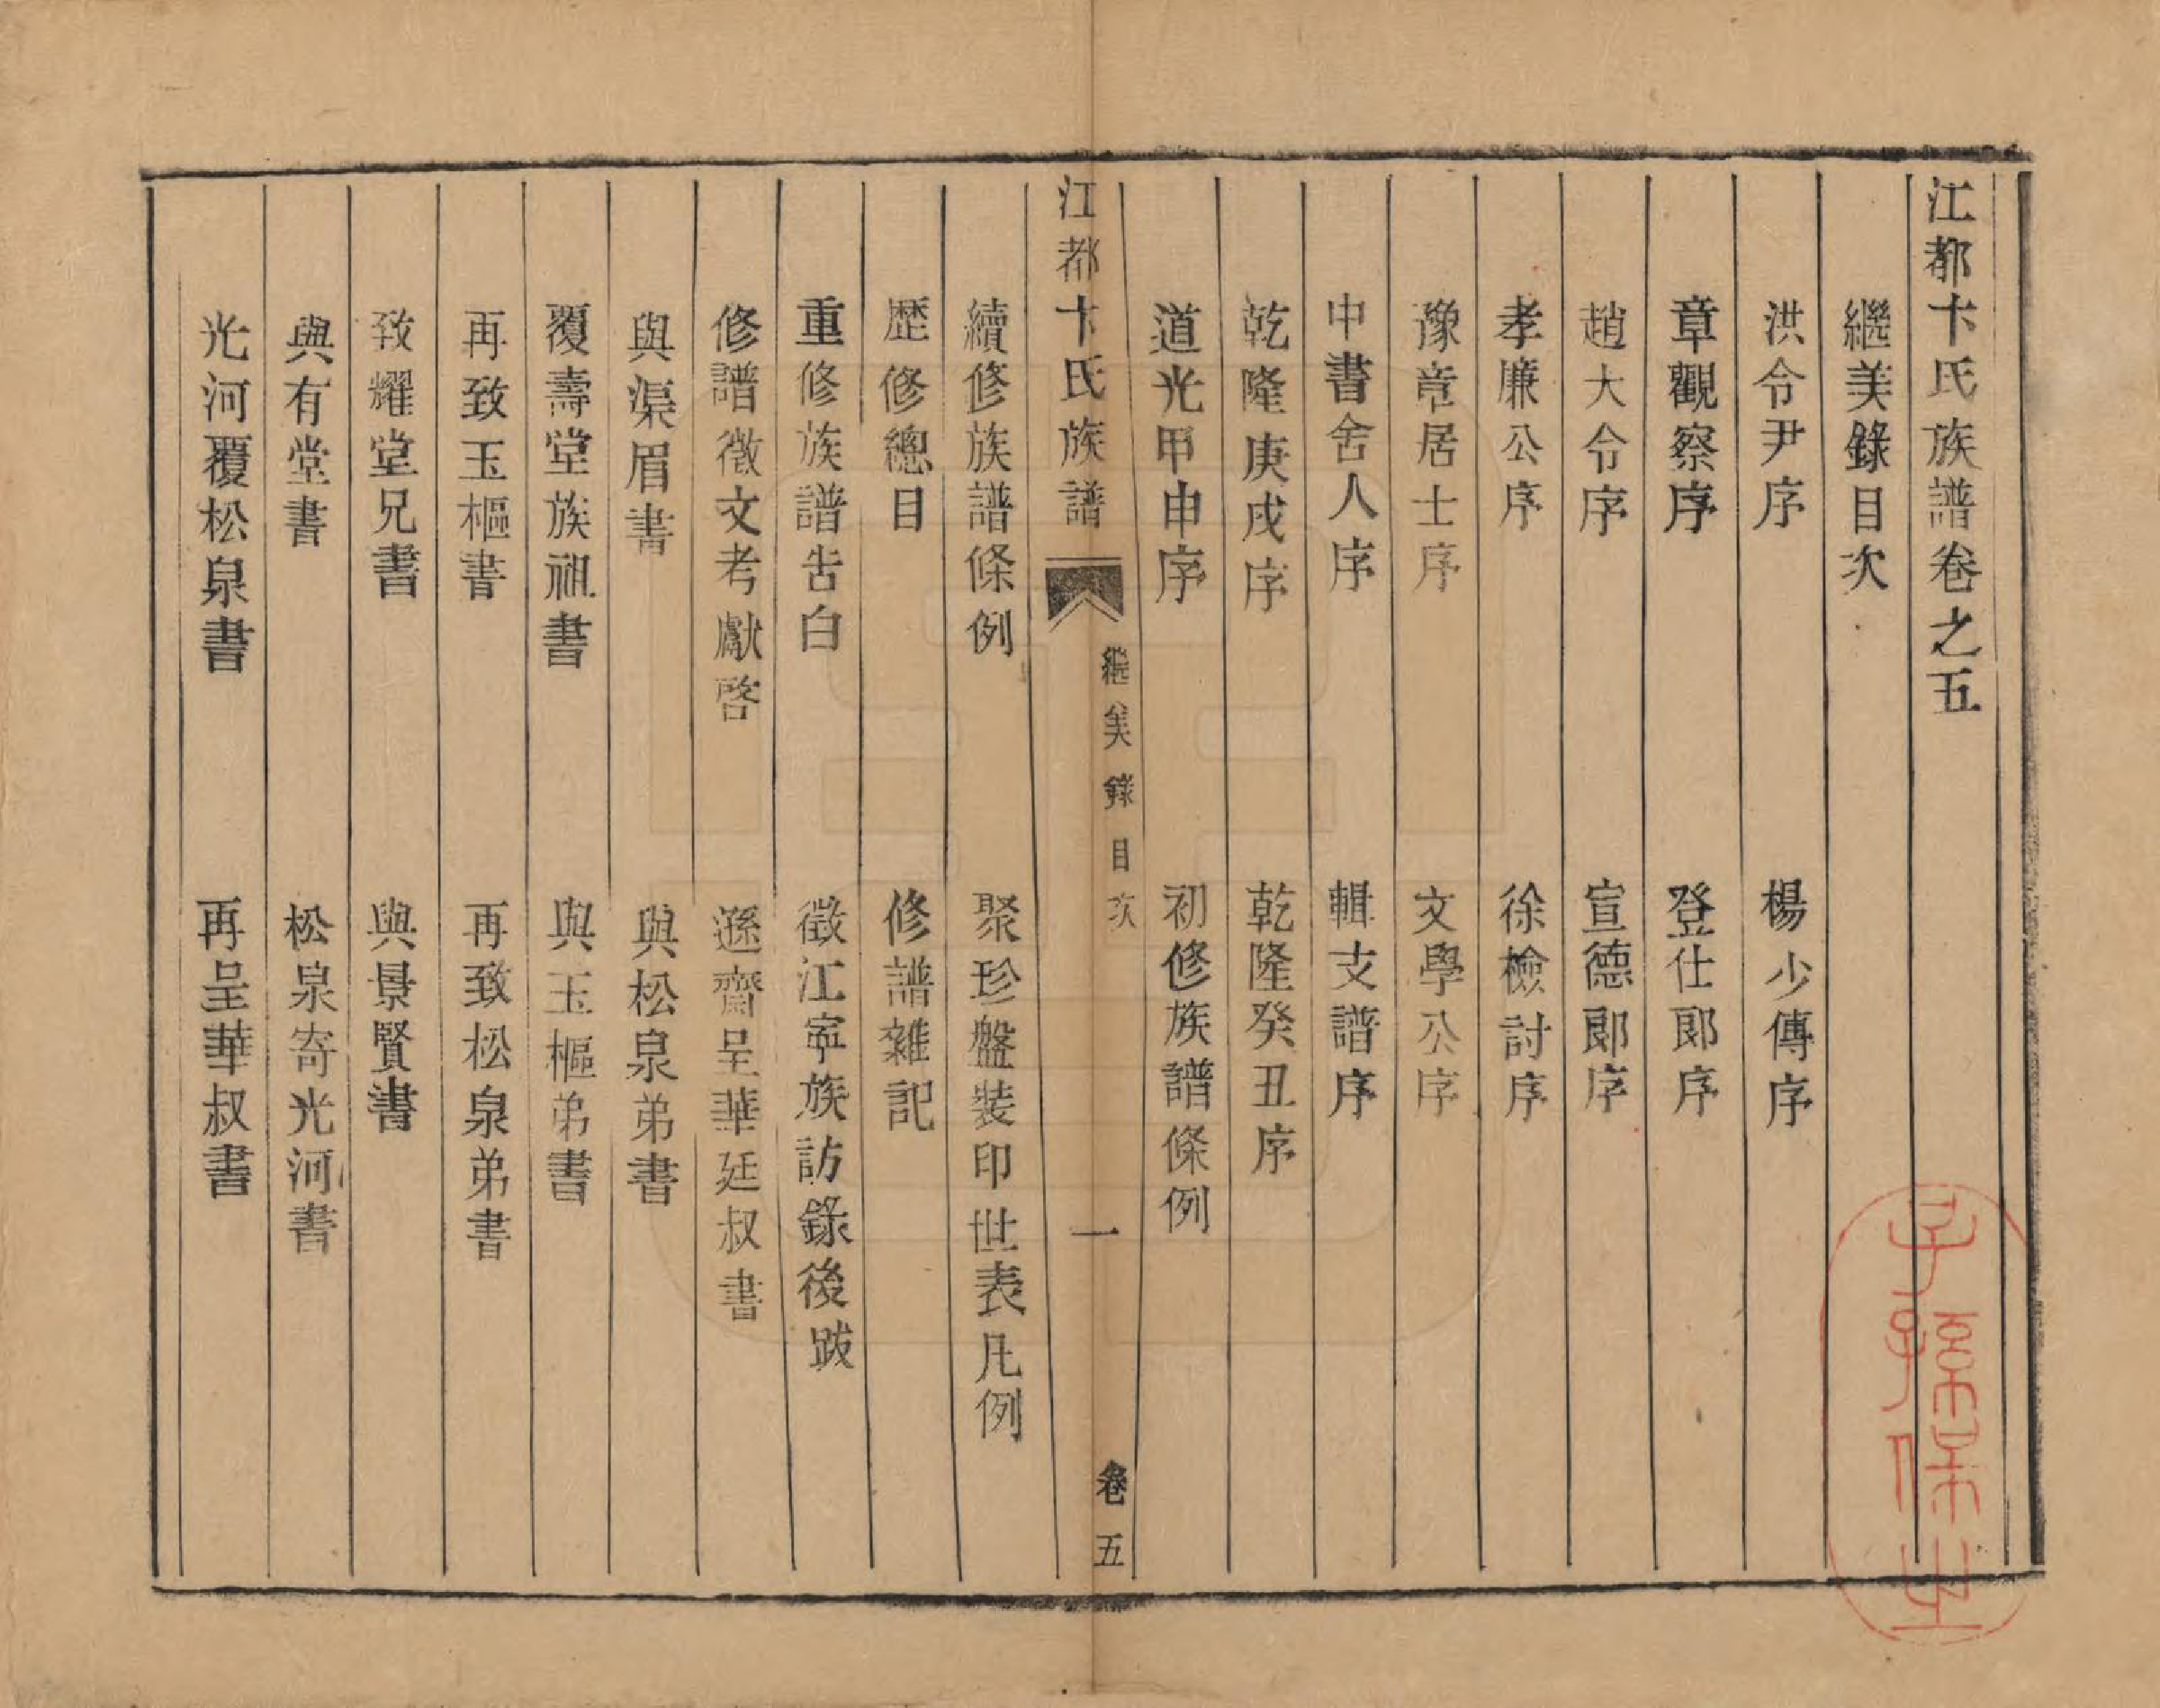 江都卞氏族譜卷之五
繼美錄目次
洪令尹序　楊少傳序
章觀察序　登仕郎序
趙大令序　宣德郎序
孝廉公序　徐檢討序
豫章居士序　文學公序
中書舍人序　輯支譜序
乾隆庚戌序　乾隆癸丑序
道光甲申序　初修族譜條例
江都卞氏族譜　繼美錄目次　一　卷五
續修族譜條例　聚珍盤裝印世表凡例
歷修總目　修譜雜記
重修族譜告白　徵江寧族訪錄後跋
修譜徵文考獻啓　遜齋呈華廷叔書
與渠眉書　與松泉弟書
覆壽堂族祖書　與玉樞弟書
再致玉樞書　再致松泉弟書
致耀堂兄書　與景賢書
與有堂書　松泉寄光河書
光河覆松泉書　再呈華叔書
子孫保之